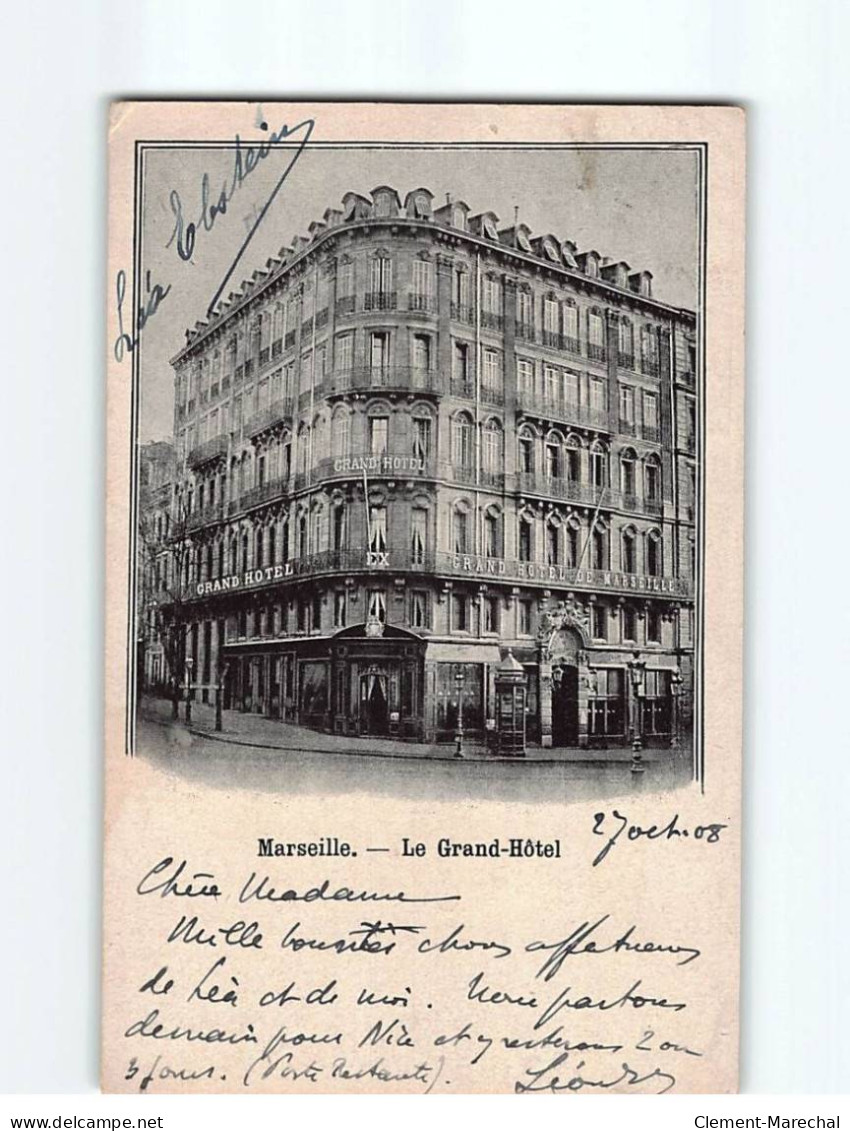 Léa Ebstein
GRAND HOTEL
GRAND HOTEL
EX
GRAND HOTEL DE MARSEILLE
Marseille. — Le Grand-Hôtel
27 oct. 08
Chère Madame
Mille bonnes choses affectueuses
de Léa et de moi. Nous partons
demain pour Nice et y resterons 2 ou
3 jours. (Poste Restante).
www.delcampe.net
Clement-Marechal